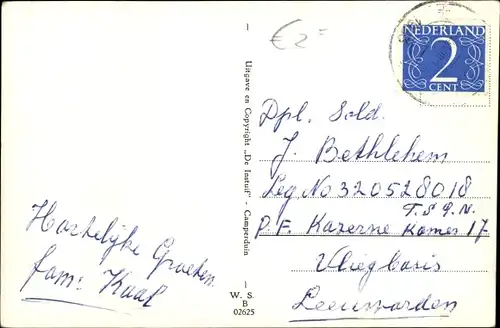 €2=
NEDERLAND
2
CENT
Uitgave en Copyright „De Instuif" - Camperduin
W. S.
B
02625
Hartelijke Groeten.
fam: Kaal
Dpl. Sold.
J. Bethlehem
Leg. No 320528018
T.S.Q.N.
P.F. Kazerne Kamer 17
Vliegbasis
Leeuwarden